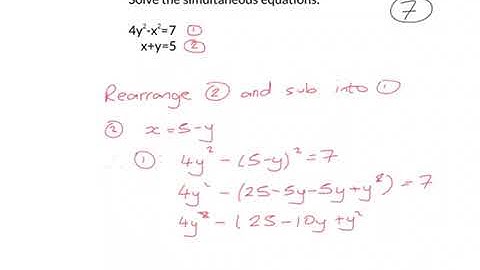 Solve the simultaneous equations.
7
4y²-x²=7 ①
x+y=5 ②
Rearrange ② and sub into ①
② x=5-y
① : 4y² - (5-y)² = 7
4y² - (25-5y-5y+y²) = 7
4y² - (25-10y+y²